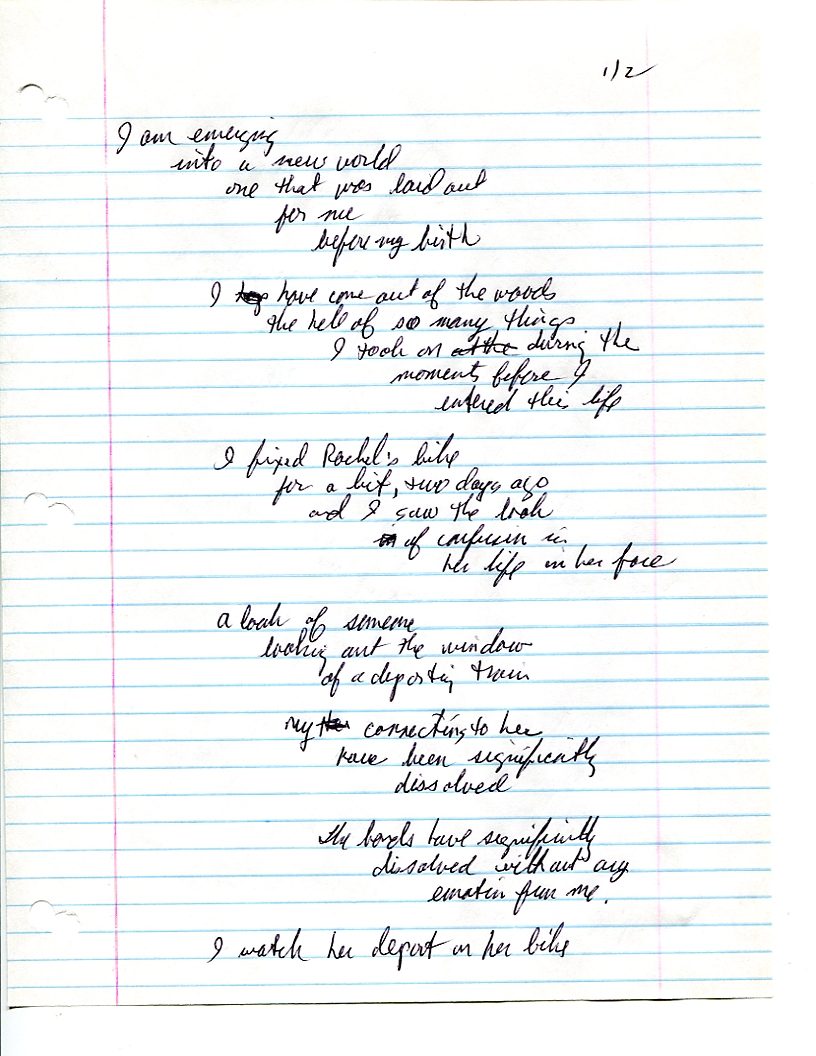 1/2
I am emerging
into a new world
one that was laid out
for me
before my birth
I have come out of the woods
the hell of so many things
I took on at the during the
moments before I
entered this life
I fixed Rachel's bike
for a bit, two days ago
and I saw the look
of confusion in
her life in her face
a look of someone
looking out the window
of a departing train
my connecting to her
have been significantly
dissolved
The bonds have significantly
dissolved without any
emotion from me.
I watch her depart on her bike